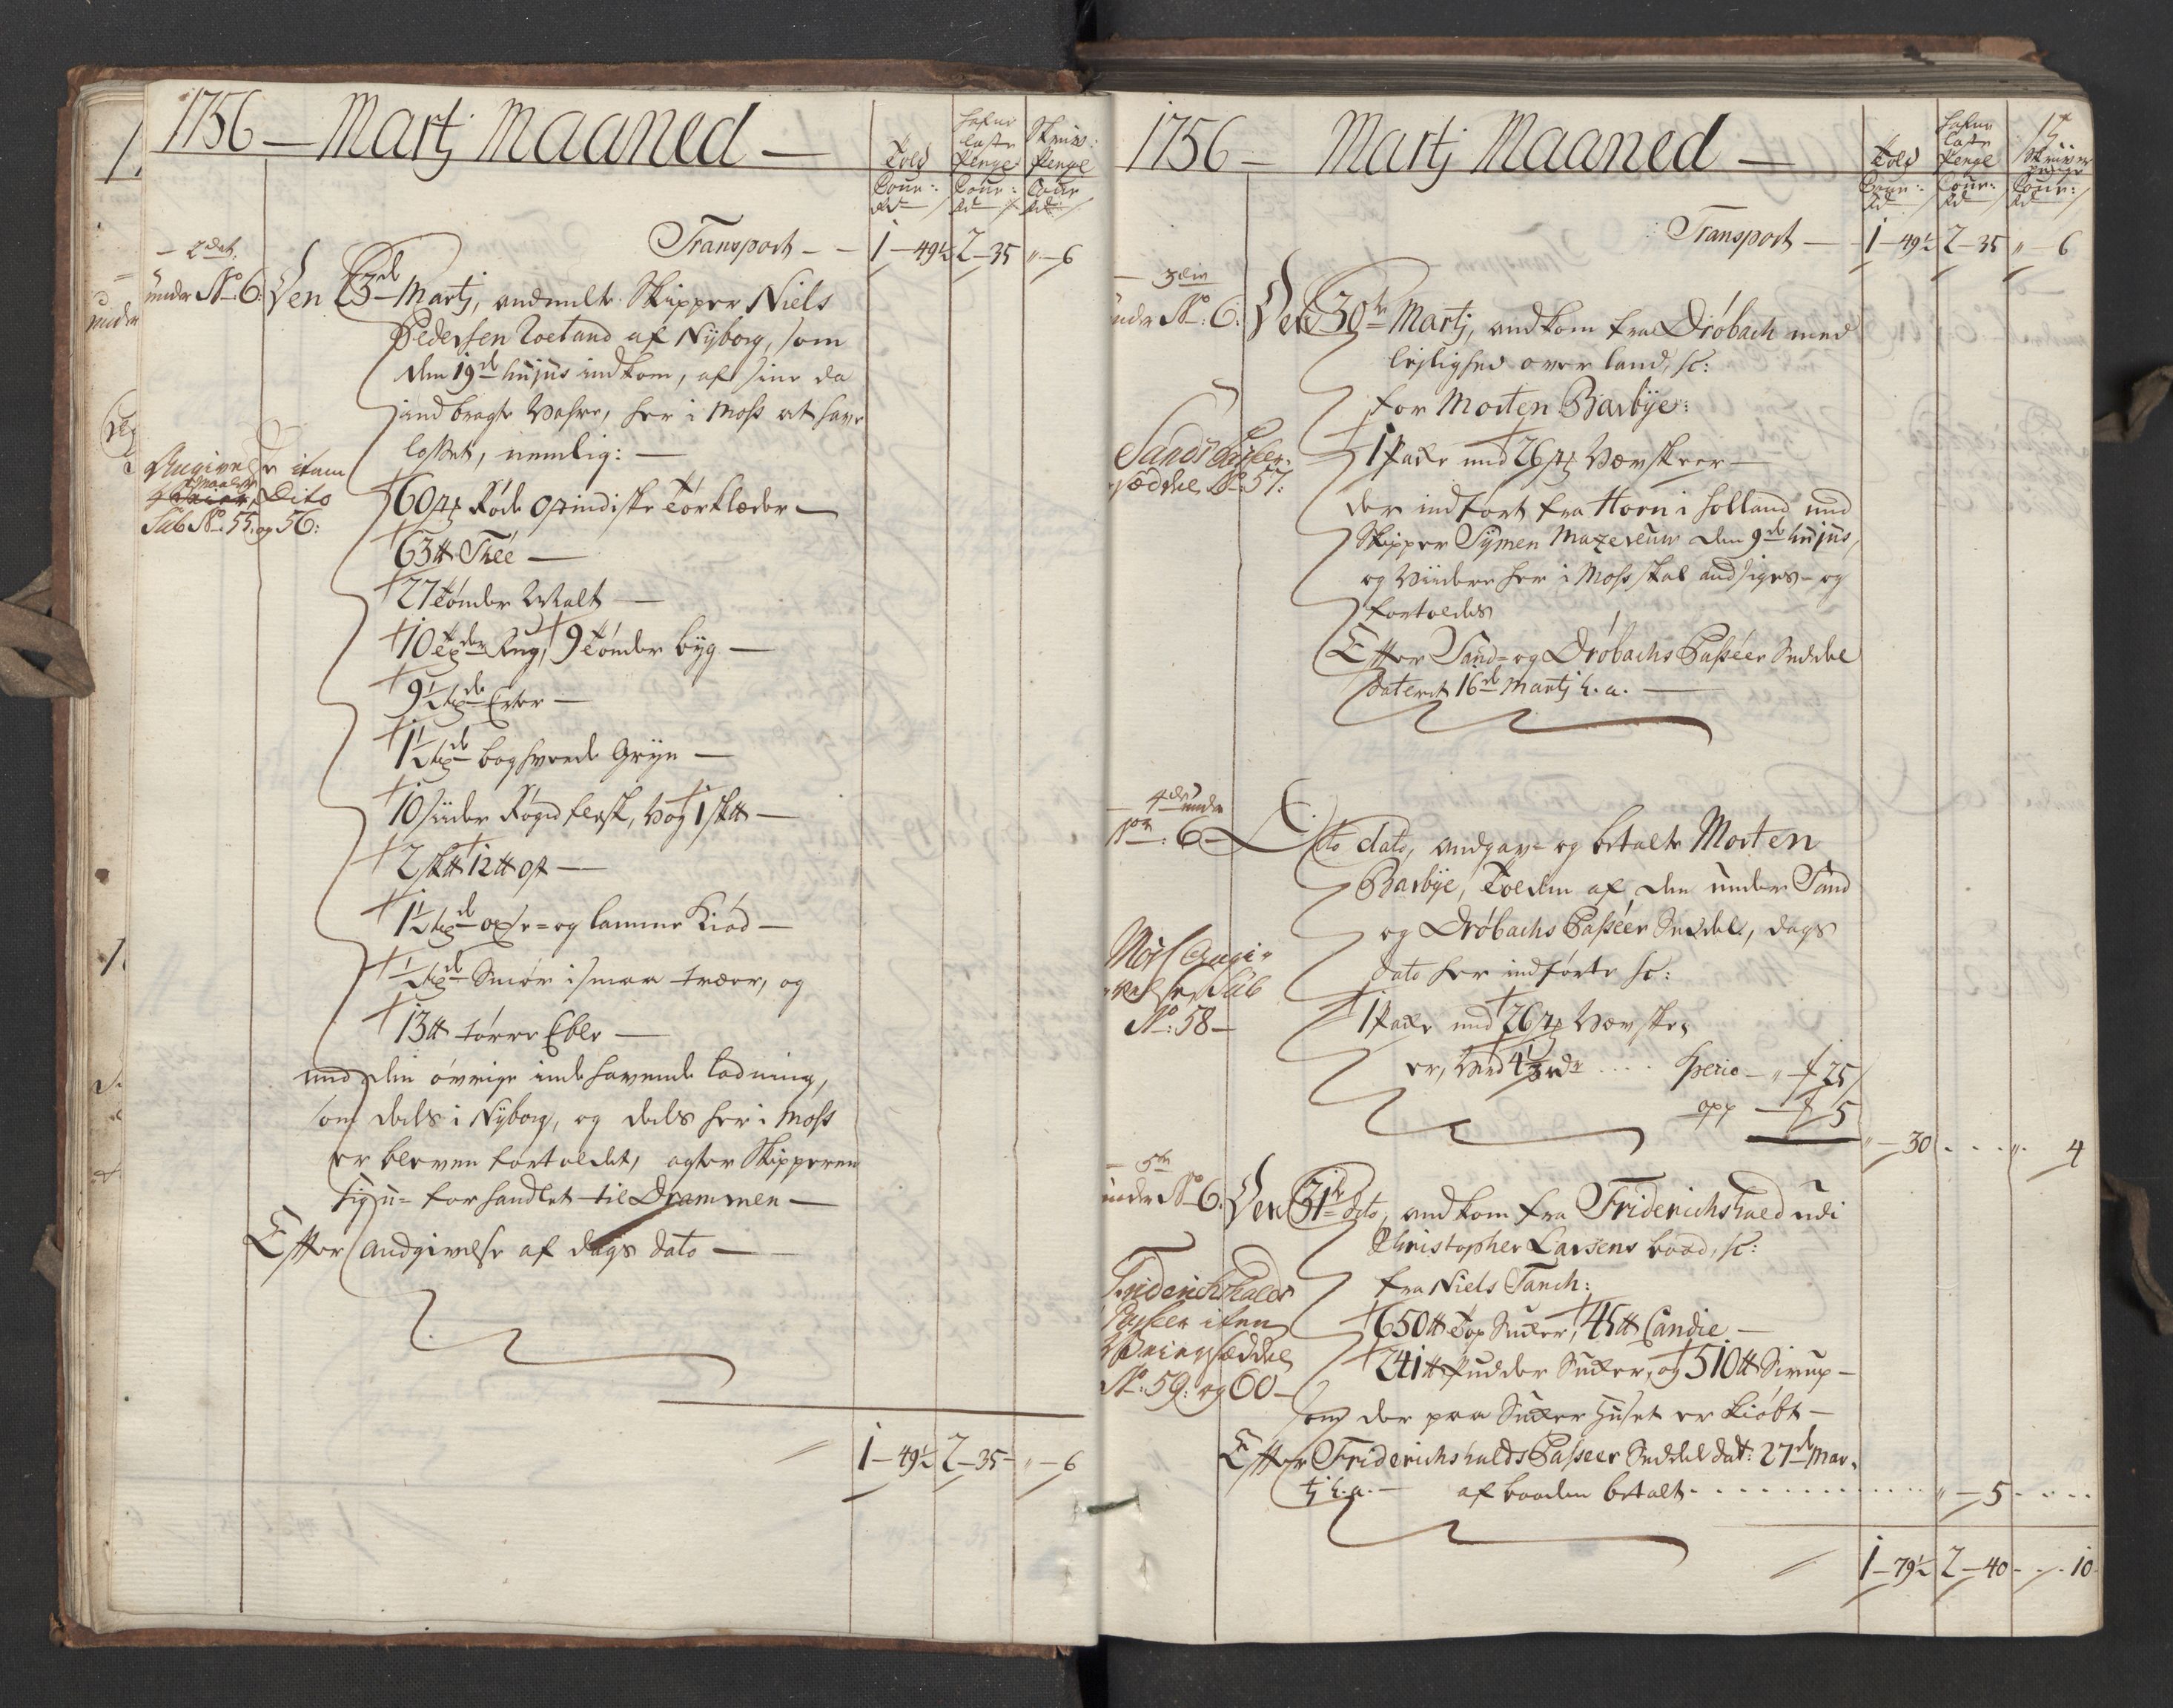 1756 — Martj Maaned —
Told
Cour:
Rd
Hafne
laste
Penge
Cour:
Rd
Skriver:
Penge
Cour
Rd
Transport — — 1 — 49½ 2 — 35 „ — 6
— 2det
under No 6:
Den 23de Martj, anmelte Skipper Niels
Pedersen af Nyborg, som
den 19de hujus indkom, af sine da
indbragte Vahre, her i Moss at have
losset, nemlig: —
Angivelse item
Dito
Sub No: 55: og 56:
60 p Røde ostindiske Tørklæder —
63 lb Thee —
27 Tønder Malt —
10 Tdr Rug, 9 Tønder byg —
9½ td Erter —
1½ td boghvede Gryn —
10 sider Røged flesk, Vog 1 sklb —
2 sklb 12 lb ost —
1½ td oxe= og lamme Kiød —
½ td Smør i smaa træer, og
13 lb tørre Ebler —
med den øvrige inde havende ladning,
som deels i Nyborg, og deels her i Moss
er bleven fortoldet, agter Skipperen
sig u= forhandlet til Drammen —
Efter Andgivelse af dags dato —
1 — 49½ 2 — 35 „ — 6
1756 — Martj Maaned —
Told
Cour:
Rd
Hafne
laste
Penge
Cour:
Rd
17
Skriver
penge
Cour:
Rd
Transport — 1 — 49½ 2 — 35 „ — 6
— 3die
under No: 6:
Den 30te Martj, andkom fra Drøbach med
lejlighed over land, sc:
for Morten Barbye:
Sands Passeer
Seddel No: 57:
1 Pakke med 26 p Væv skeer —
der indført fra Horn i Holland med
Skipper Symen Mazereeuw den 9de hujus,
og Viidere her i Moss skal andsiges — og
fortoldes
Efter Sand= og Drøbachs Passeer Seddel
dateret 16de Martj h. a. —
— 4de under
No: 6 —
Dito dato, andgav= og betalte Morten
Barbye, Tolden af den under Sand
og Drøbachs Passeer Seddel, dags
dato her indførte sc:
Moss Angi=
velse Sub
No: 58 —
1 Pakke med 26 p Væv ske=
er, Værd 4⅓ rdr .... Specie — „ — 25
opp — 5
„ — 30 . . . „ 4
— 5te
under No 6:
Den 31te dito, andkom fra Friderichshald udi
Christopher Larsens baad, sc:
fra Niels Tanch:
Friderichshalds
Passeer item
Seddel
No: 59: og 60 —
650 lb Top Sucker, 45 lb Candie —
241 lb Pudder Sucker, og 510 lb Sirup —
som der paa Sucker Huset er kiøbt —
Efter Friderichshalds Passeer Seddel dat: 27de Mar=
tj h. a. — af baaden betalt . . . . . „ — 5 . . . .
1 — 79½ 2 — 40 . . . 10